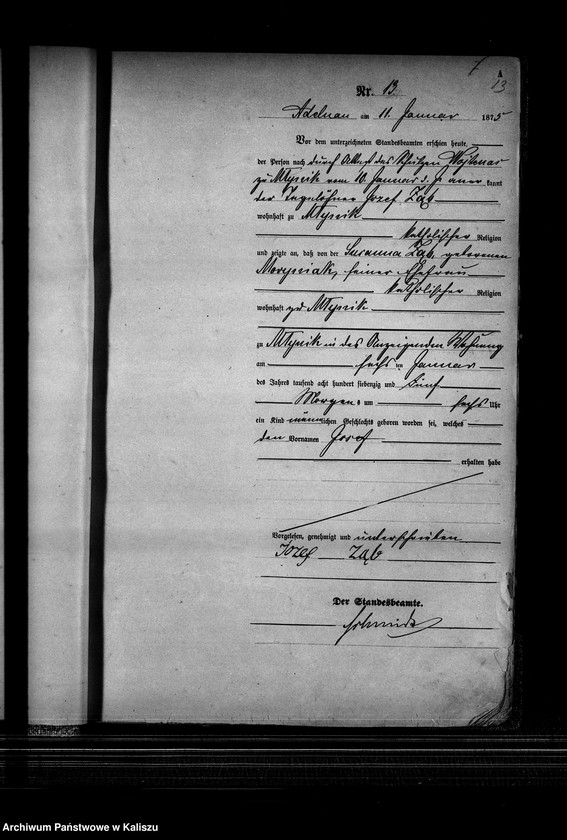 7
A
13
Nr. 13.
Adelnau am 11. Januar 1875
Vor dem unterzeichneten Standesbeamten erschien heute,
der Person nach durch Attest des Schulzen
zu Młynik vom 10. Januar d. J. aner kannt
der Tagelöhner Jozef Ząb
wohnhaft zu Młynik
katholischer Religion
und zeigte an, daß von der Susanna Ząb, geborenen
seiner Ehefrau
katholischer Religion
wohnhaft zu Młynik
zu Młynik in des Anzeigenden Wohnung
am sechs ten Januar
des Jahres tausend acht hundert siebenzig und fünf
Morgens um sechs Uhr
ein Kind männlichen Geschlechts geboren worden sei, welches
den Vornamen Josef
erhalten habe
Vorgelesen, genehmigt und unterschrieben
Jozef Ząb
Der Standesbeamte.
Schmidt
Archiwum Państwowe w Kaliszu